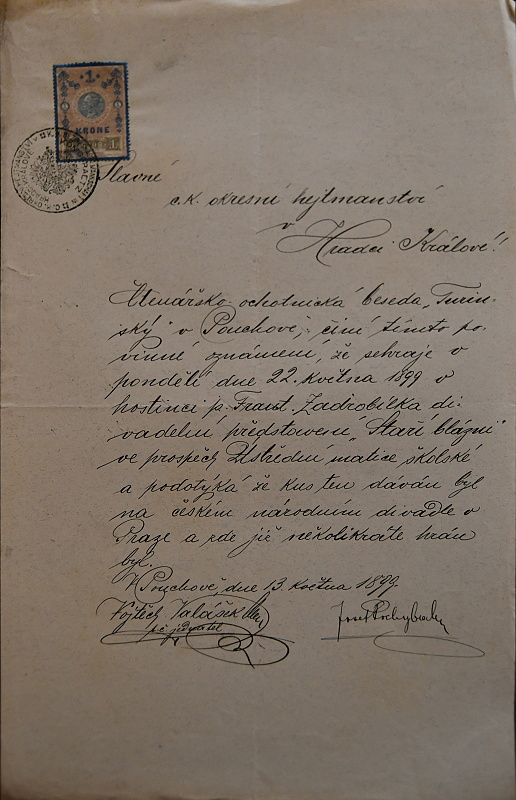 1
KRONE
Slavné
c.k. okresní hejtmanství
v
Hradci Králové!
Čtenářsko-ochotnická beseda „Turin-
ský" v Pouchově, činí tímto po-
vinné oznámení, že sehraje v
pondělí dne 22. května 1899 v
hostinci p. Frant. Zadrobílka di-
vadelní představení „Staří blázni"
ve prospěch Ústřední matice školské
a podotýká že kus ten dáván byl
na českém národním divadle v
Praze a zde již několikráte hrán
byl.
V Pouchově, dne 13. května 1899.
Vojtěch Valášek
t.č. jednatel
Josef